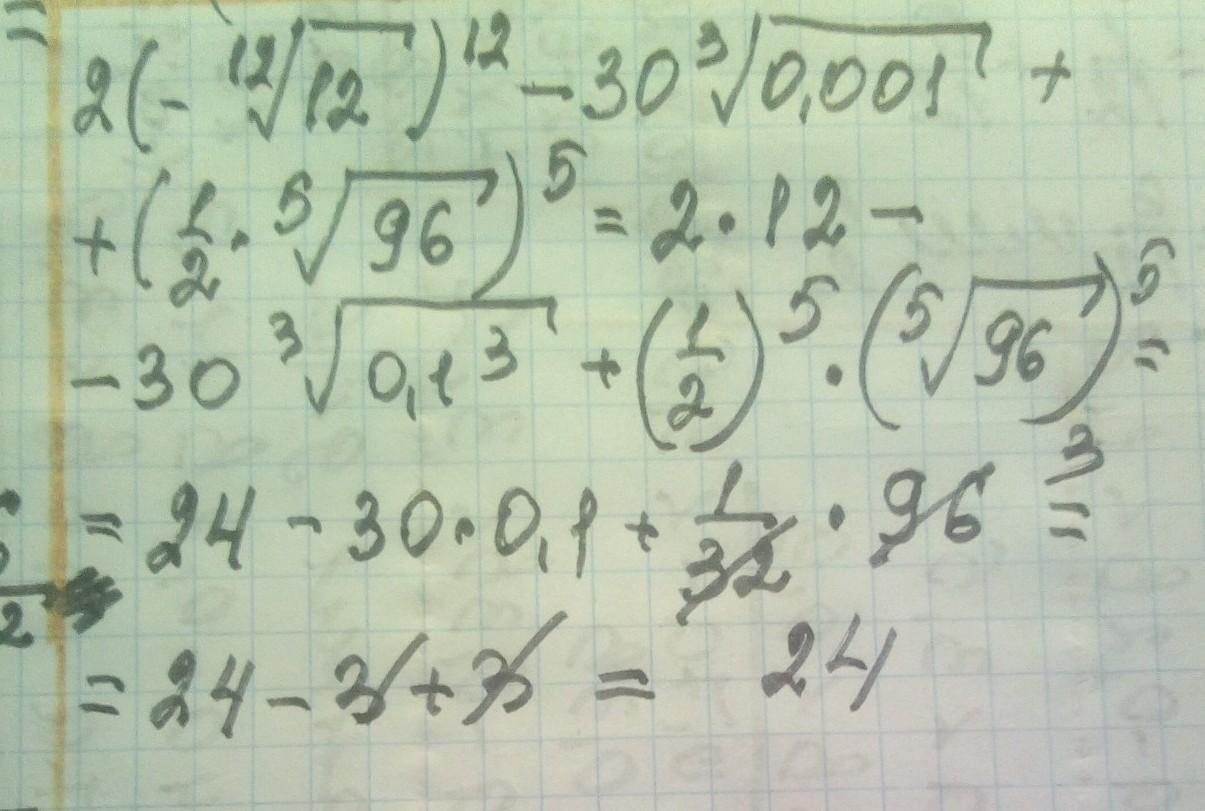 =
2(-¹²√12)¹² - 30 ³√0,001 +
+ (1/2 · ⁵√96)⁵ = 2 · 12 -
- 30 ³√0,1³ + (1/2)⁵ · (⁵√96)⁵ =
= 24 - 30 · 0,1 + 1/32 · 96 3 =
2
= 24 - 3 + 3 = 24